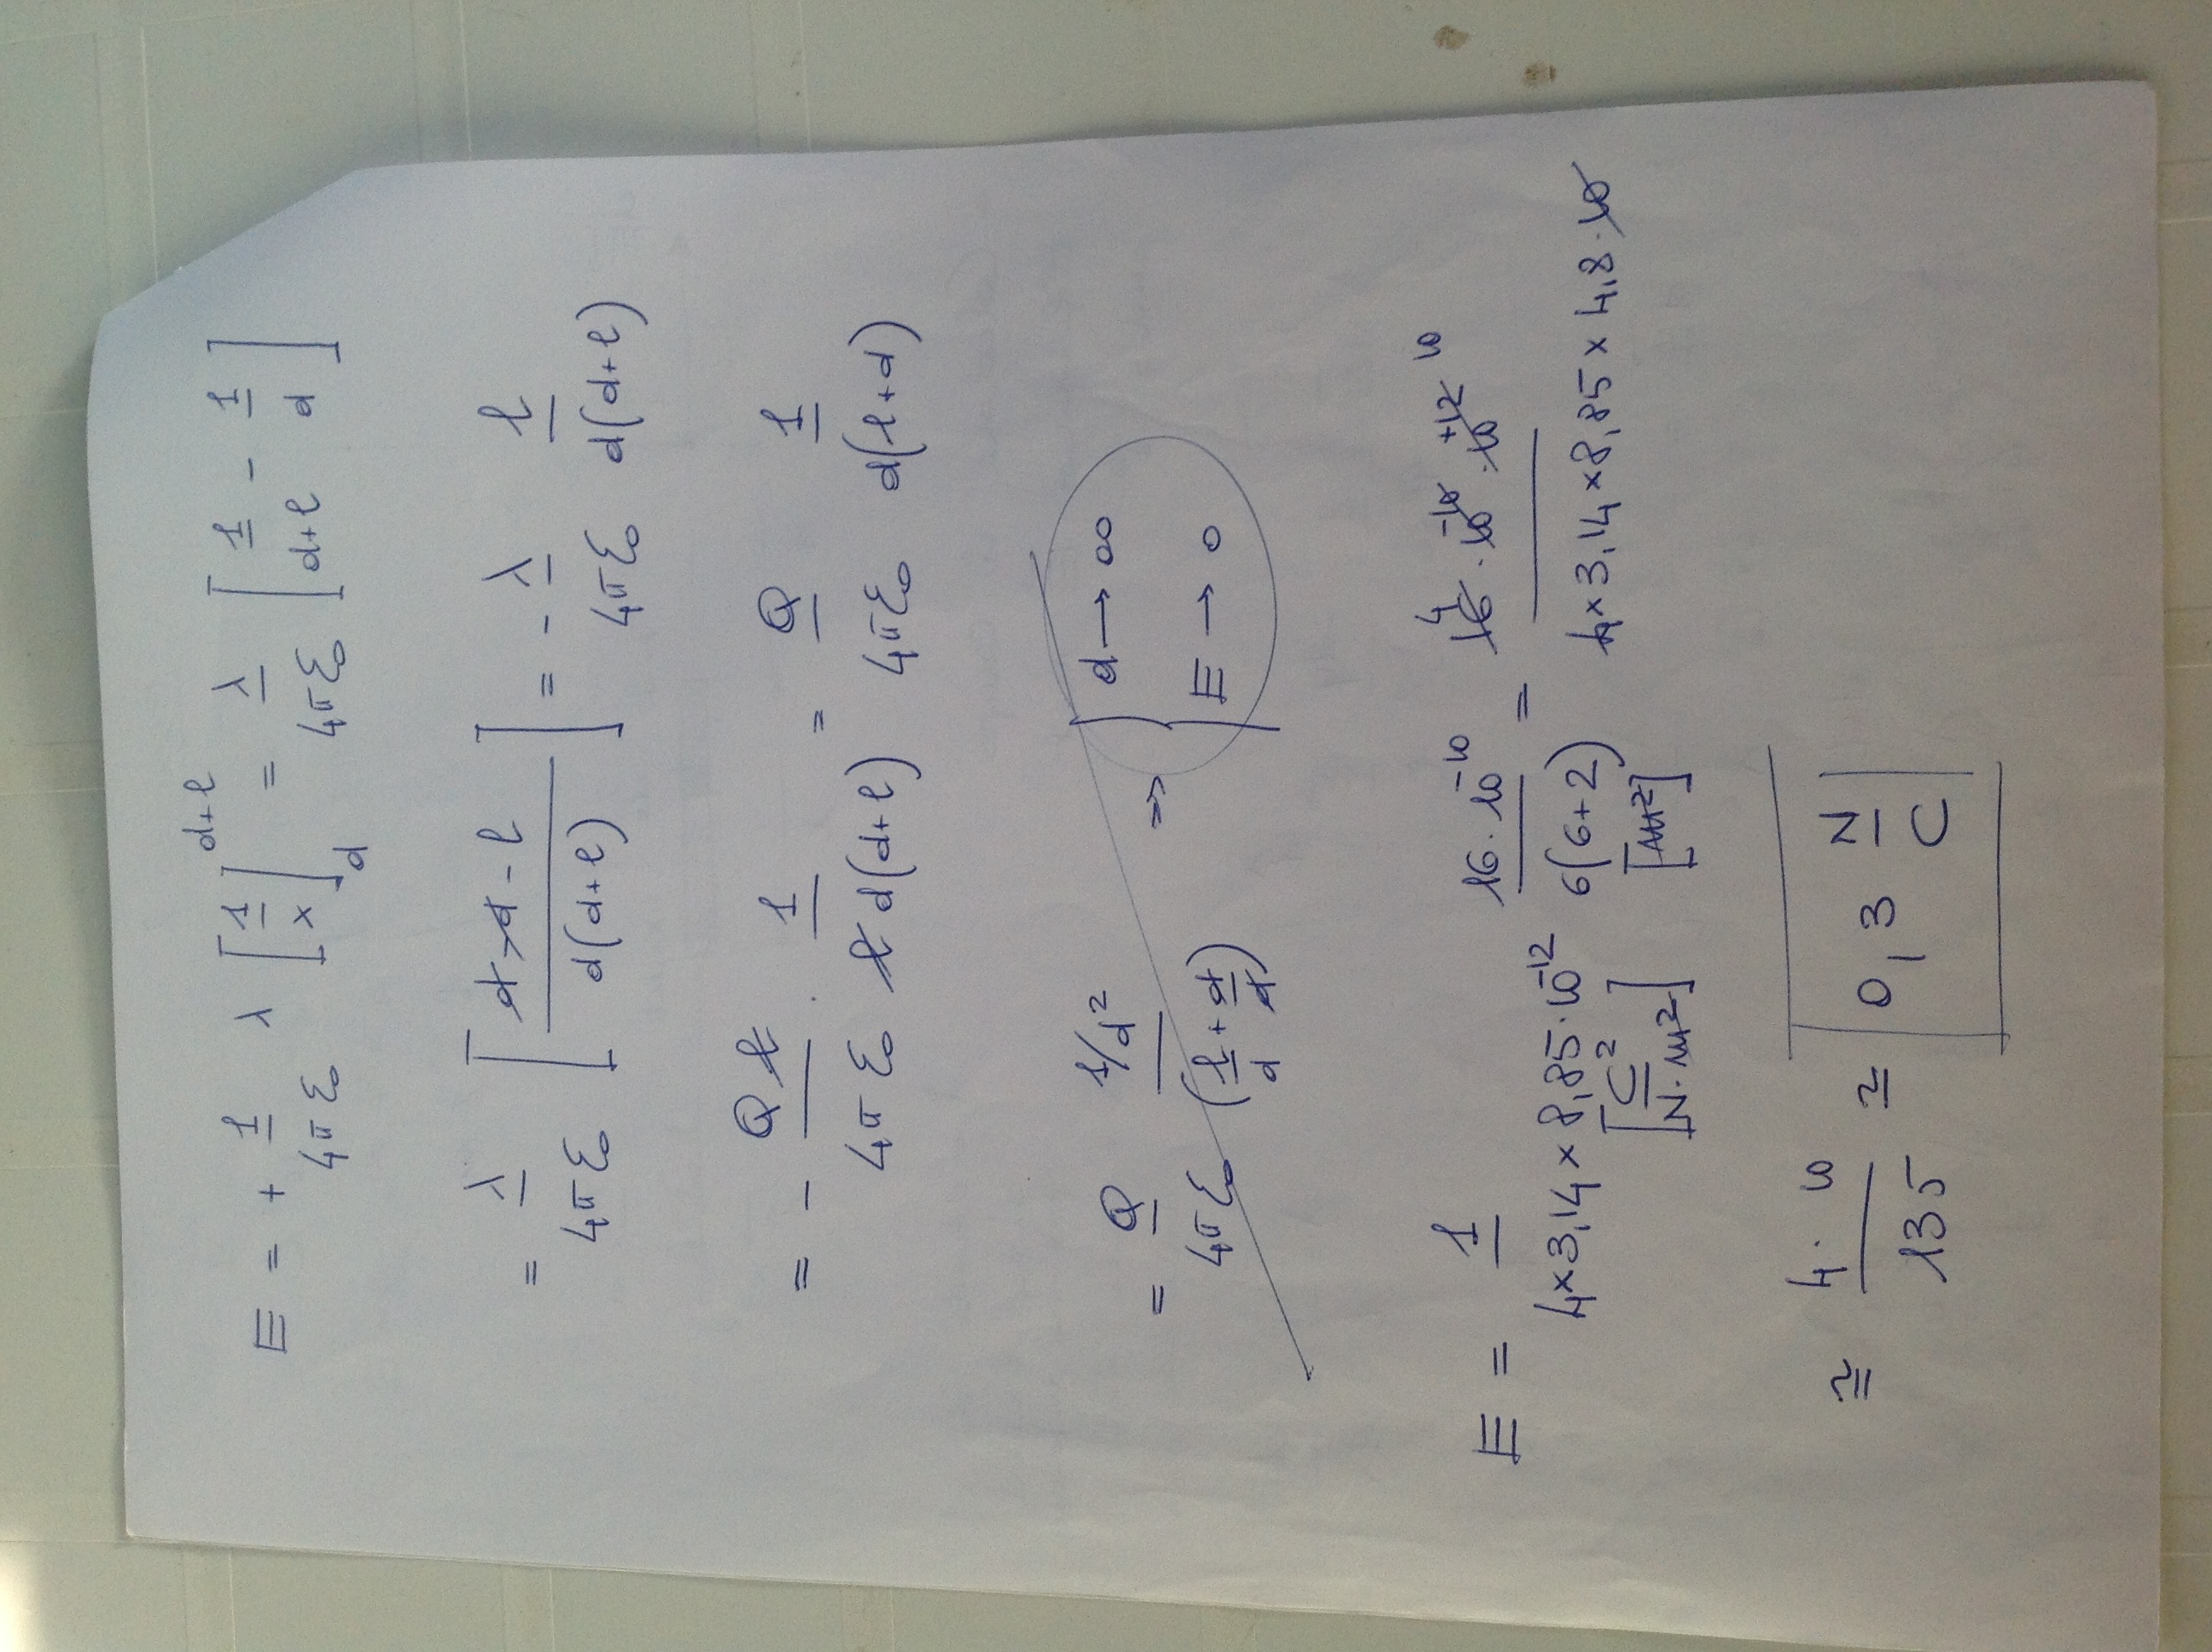 E = + 1/4πε₀ λ [1/x]_d^{d+l} = λ/4πε₀ [1/d+l - 1/d]
= λ/4πε₀ [d-d-l / d(d+l)] = - λ/4πε₀ l/d(d+l)
= - Q l/4πε₀ · 1/l d(d+l) = Q/4πε₀ 1/d(l+d)
= Q/4πε₀ 1/d²/(l/d + d/d) ⇒ | d → ∞
E → 0
E = 1/4×3,14×8,85·10⁻¹² [C²/N·m²] 16·10⁻¹⁰/6(6+2) [m²] = 4 16·10⁻¹⁰·10⁺¹² 10/4×3,14×8,85×4,8·10
≅ 4· 10/135 ≃ 0,3 N/C